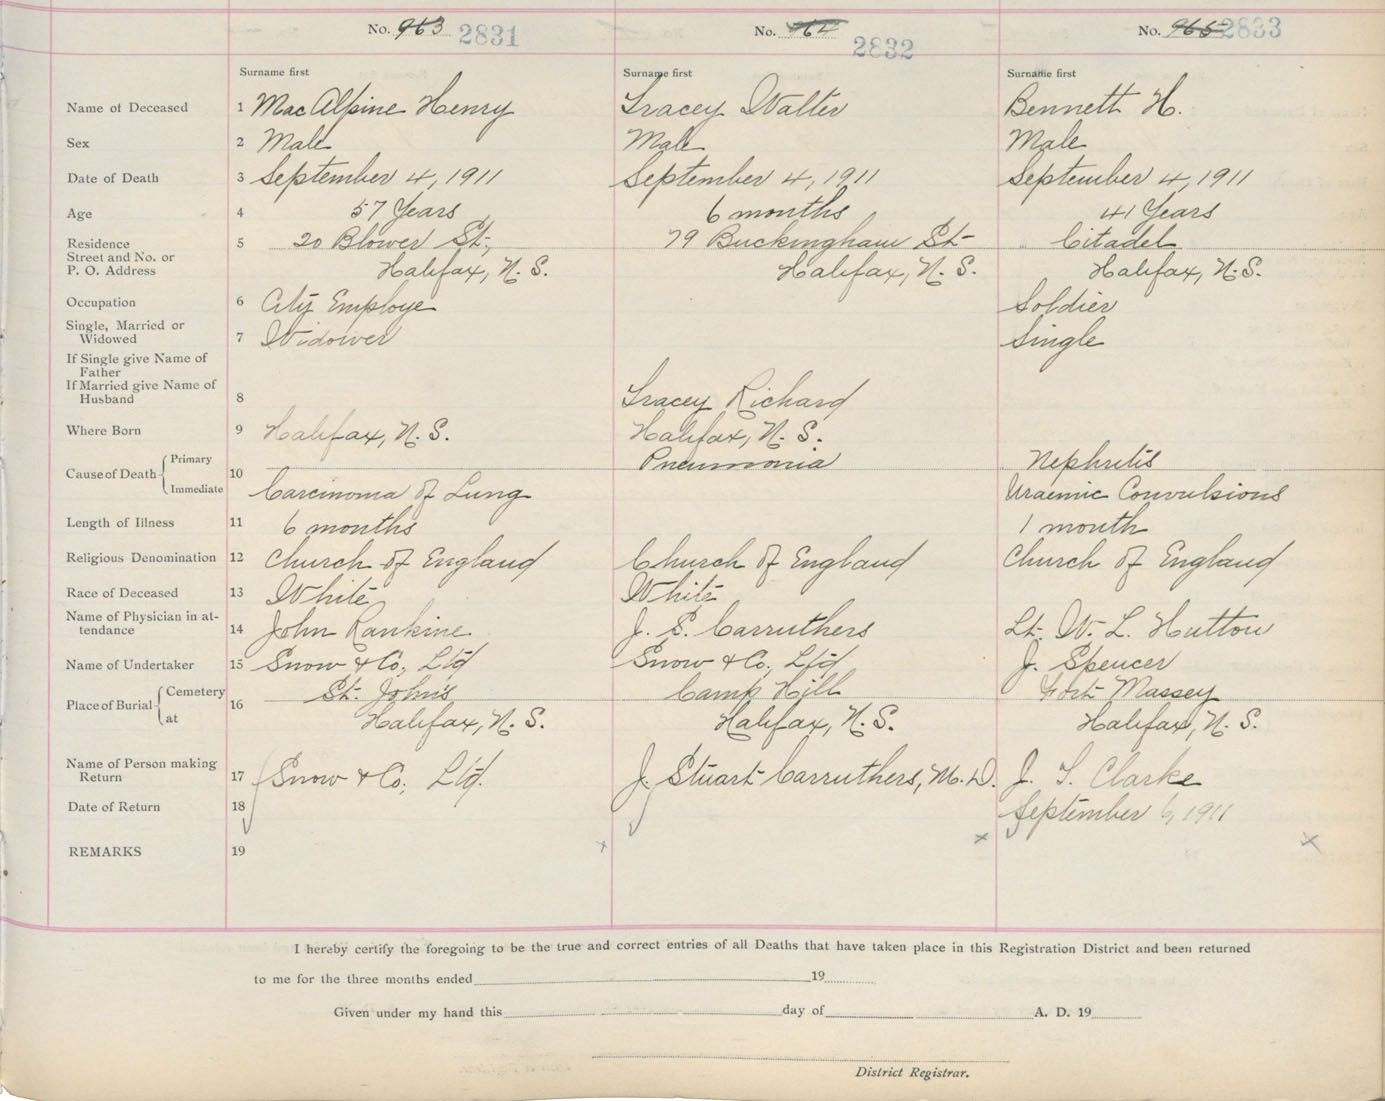 No. 963 2831 No. 964 2832 No. 965 2833
Surname first Surname first Surname first
Name of Deceased 1 MacAlpine Henry Tracey Walter Bennett H.
Sex 2 Male Male Male
Date of Death 3 September 4, 1911 September 4, 1911 September 4, 1911
Age 4 57 Years 6 months 41 Years
Residence 5 20 Blower St., 79 Buckingham St- Citadel
Street and No. or
P. O. Address Halifax, N. S. Halifax, N. S. Halifax, N. S.
Occupation 6 City Employe Soldier
Single, Married or
Widowed 7 Widower Single
If Single give Name of
Father
If Married give Name of
Husband 8 Tracey Richard
Where Born 9 Halifax, N. S. Halifax, N. S.
Cause of Death Primary 10 Pneumonia Nephritis
Immediate Carcinoma of Lung Uraemic Convulsions
Length of Illness 11 6 months 1 month
Religious Denomination 12 Church of England Church of England Church of England
Race of Deceased 13 White White
Name of Physician in at-
tendance 14 John Rankine J. S. Carruthers Lt. W. L. Hutton
Name of Undertaker 15 Snow & Co., Ltd Snow & Co., Ltd J. Spencer
Place of Burial Cemetery 16 St. John's Camp Hill Fort Massey
at Halifax, N. S. Halifax, N. S. Halifax, N. S.
Name of Person making
Return 17 Snow & Co., Ltd. J. Stuart Carruthers, M. D. J. T. Clarke
Date of Return 18 September 6, 1911
REMARKS 19 x x x
I hereby certify the foregoing to be the true and correct entries of all Deaths that have taken place in this Registration District and been returned
to me for the three months ended 19
Given under my hand this day of A. D. 19
District Registrar.